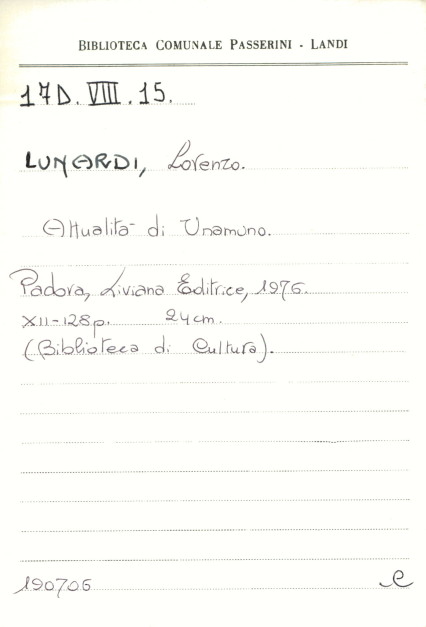 BIBLIOTECA COMUNALE PASSERINI - LANDI
17D. VIII. 15.
LUNARDI, Lorenzo.
Attualità di Unamuno.
Padova, Liviana Editrice, 1976.
XII-128p. 24cm.
(Biblioteca di Cultura).
190706 e